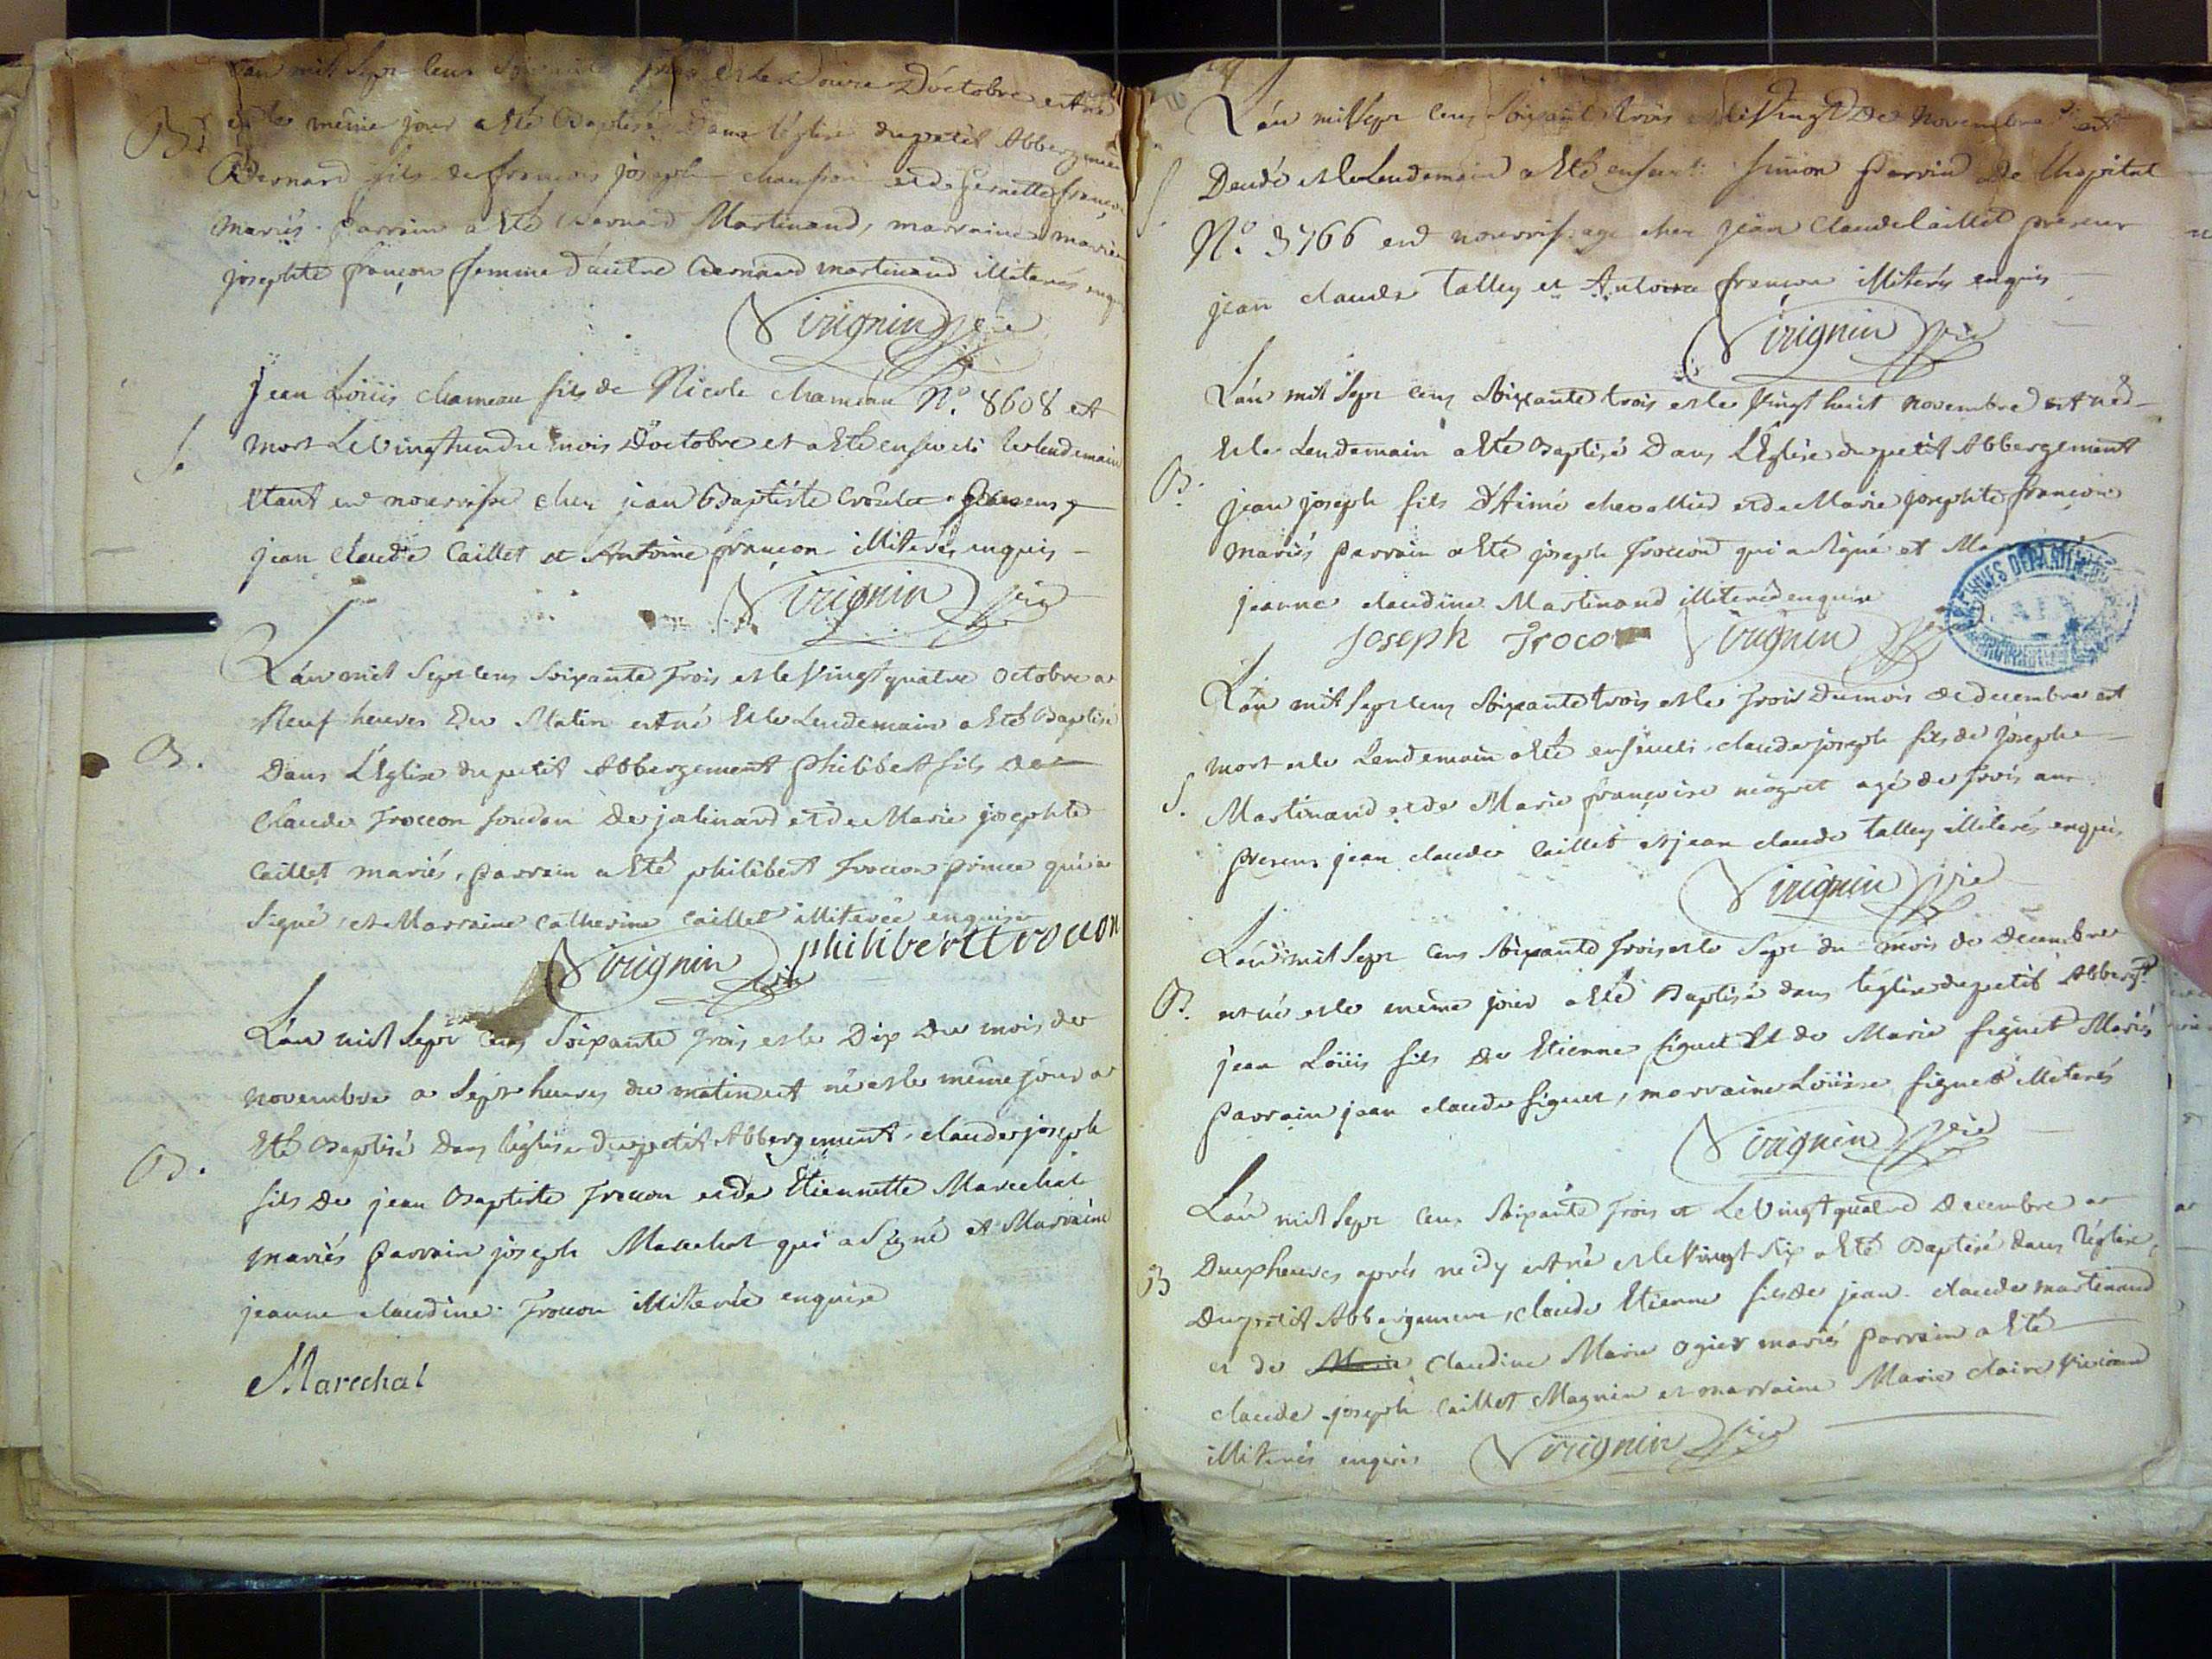 L'an mil sept cens soixante trois et le douze d'octobre est né
B. et le même jour a été Baptisé Dans l'église du petit Abbergement
Bernard fils de françois joseph et de pernette françon
mariés. parrain a été Bernard Martinand, marraine marie
josephte françon femme d'autre Bernard martinand illiterés enquis
Virignin vic
jean Loüis chameau fils de Nicole chameau N.° 8608 est
S. mort le vingt un du mois D'octobre et a été enseveli le lendemain
étant en nourrisse chez jean Baptiste presens
jean claude Caillet et Antoine françon illiterés enquis
Virignin vic
L'an mil sept cens soixante trois et le vingt quatre octobre a
Neuf heures Du Matin est né et le Lendemain a été Baptisé
B. Dans L'Eglise du petit Abbergement philibert fils de
Claude Troccon de jalinard et de Marie josephte
Caillet mariés, parrain a été philibert Troccon prince qui a
signé, et Marraine Catherine Caillet illiterée enquise
Virignin vic philibért troccon
L'an mil sept cens soixante trois et le Dix Du mois de
novembre a sept heures du matin est né et le même jour a
B. été Baptisé Dans l'église du petit Abbergement, claude joseph
fils de jean Baptiste Troccon et de Etiennette Marechal
mariés parrain joseph Marechal qui a signé et Marraine
jeanne claudine Troccon illiterée enquise
Marechal
L'an mil sept cens soixante trois et le vingt de Novembre est
S. Décédé et le Lendemain a été enseveli simon parrin De l'hopital
N.° 3766 en nourrissage chez jean Claude Caillet presens
jean claude Talley et Antoine françon illiterés enquis
Virignin vic
L'an mil sept cens soixante trois et le vingt huit novembre est né
et le Lendemain a été Baptisé Dans L'Eglise du petit Abbergement
B. jean joseph fils D'Aimé chevallier et de Marie josephte françon
mariés parrain a été joseph Troccon qui a signé et
jeanne claudine Martinand illiterée enquise
joseph Troco Virignin vic
L'an mil sept cens soixante trois et le trois du mois de decembre est
mort et le Lendemain a été enseveli claude joseph fils de joseph
S. Martinand et de Marie françoise nogret agé de trois ans
presens jean claude Caillet et jean claude Talley illiterés enquis
Virignin vic
L'an mil sept cens soixante trois et le sept du mois de decembre
B. est né et le même jour a été Baptisé dans l'église du petit Abbergt
jean Loüis fils de Etienne figuet Et de Marie figuet Mariés
parrain jean claude figuet, marraine Loüise figuet illiterés
Virignin vic
L'an mil sept cens soixante trois et Le vingt quatre decembre a
B Deux heures après midy est né et le vingt six a été Baptisé dans l'église
Du petit Abbergement, claude Etienne fils de jean claude martinand
et de Marie claudine Marie ogier mariés parrain a été
claude joseph Caillet Magnin et marraine Marie claire
illiterés enquis Virignin vic
ARCHIVES DEPARTEMENTALES
AIN